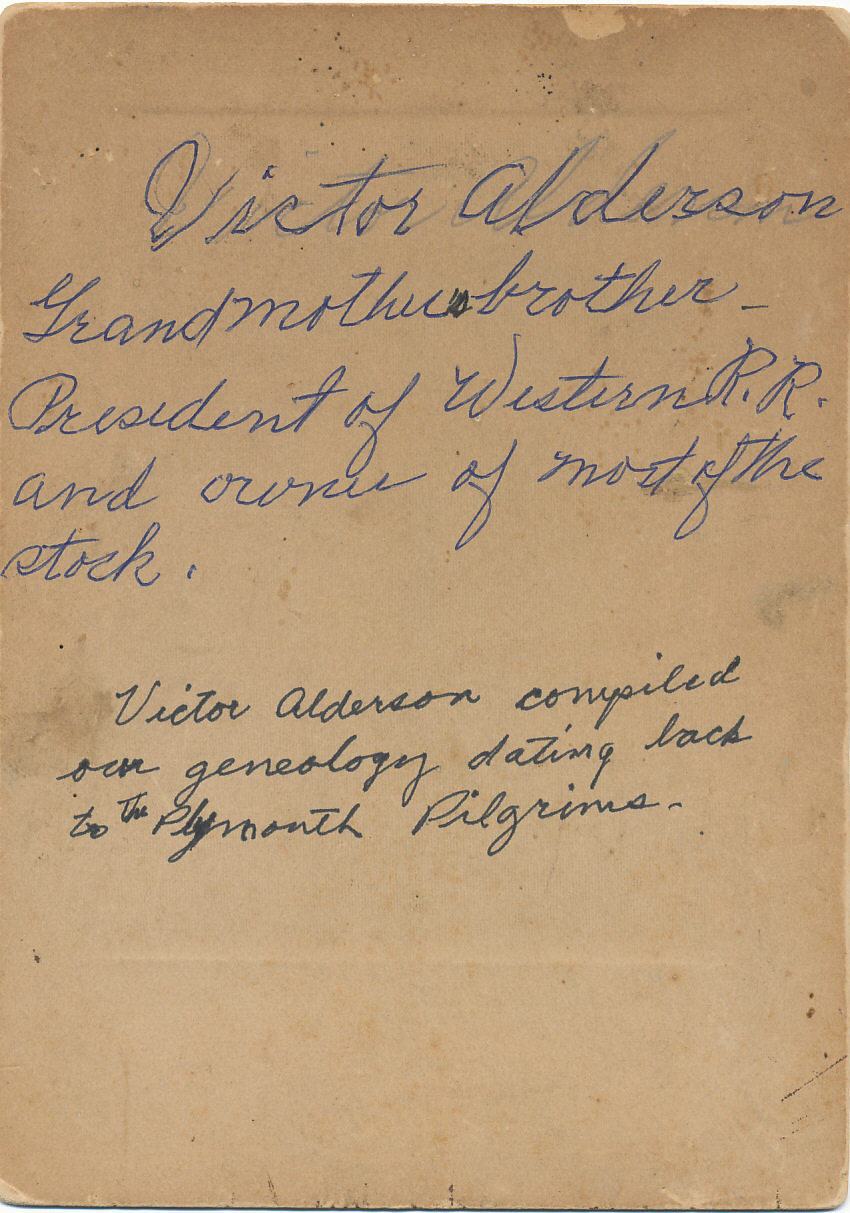 Victor Alderson
Grandmother's brother -
President of Western R.R.
and owner of most of the
stock.
Victor Alderson compiled
our geneology dating back
to The Plymouth Pilgrims.